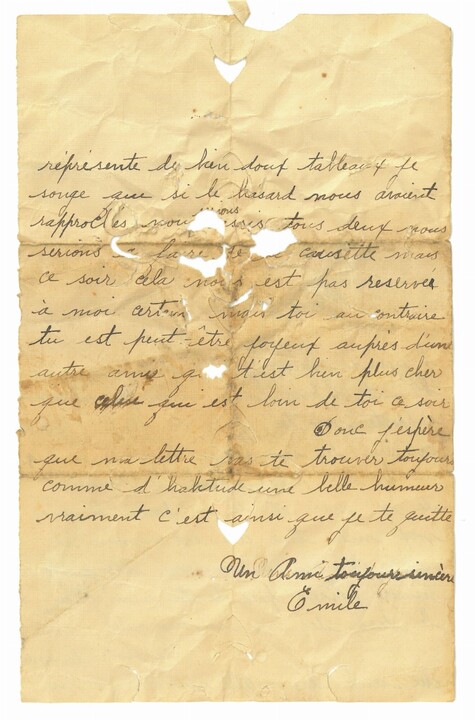 répresente de bien doux tableaux je
songe que si le hasard nous avaient
rapprochés nous assis tous deux nous
serions a faire de causette mais
ce soir cela nous est pas reservée
à moi mais toi au contraire
tu est peut-être joyeux auprès d'une
autre amis qui t'est bien plus cher
que celui qui est loin de toi ce soir
Donc j'espère
que ma lettre vas te trouver toujours
comme d'habitude une belle humeur
vraiment c'est ainsi que je te quitte
Un Ami toujours sincère
Emile